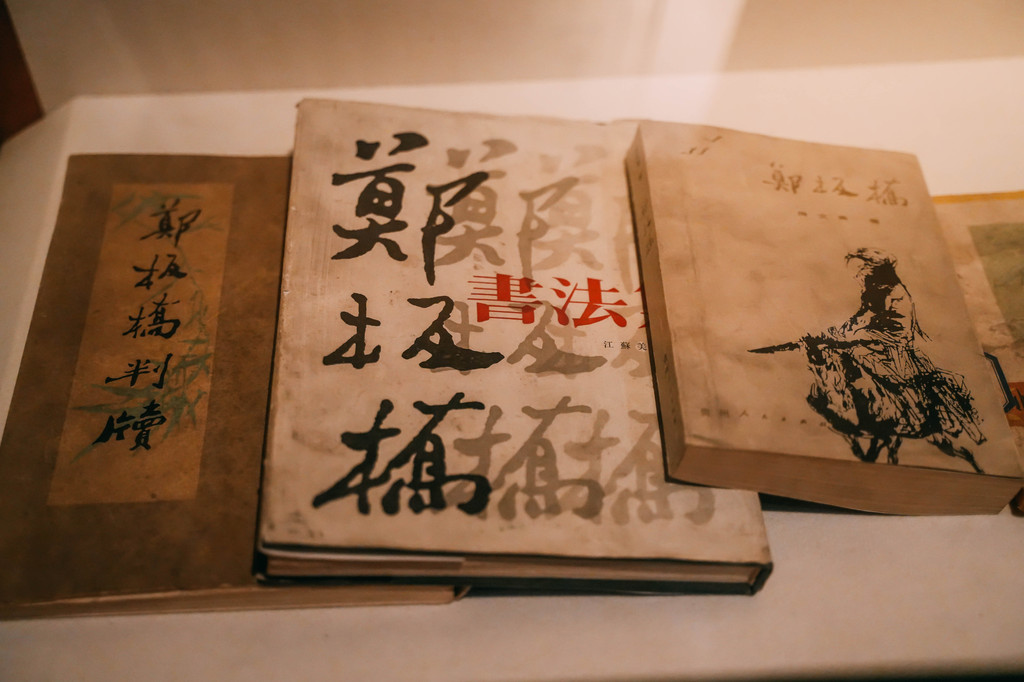 鄭板橋判牘
鄭板橋
書法
江蘇美
鄭板橋
人民